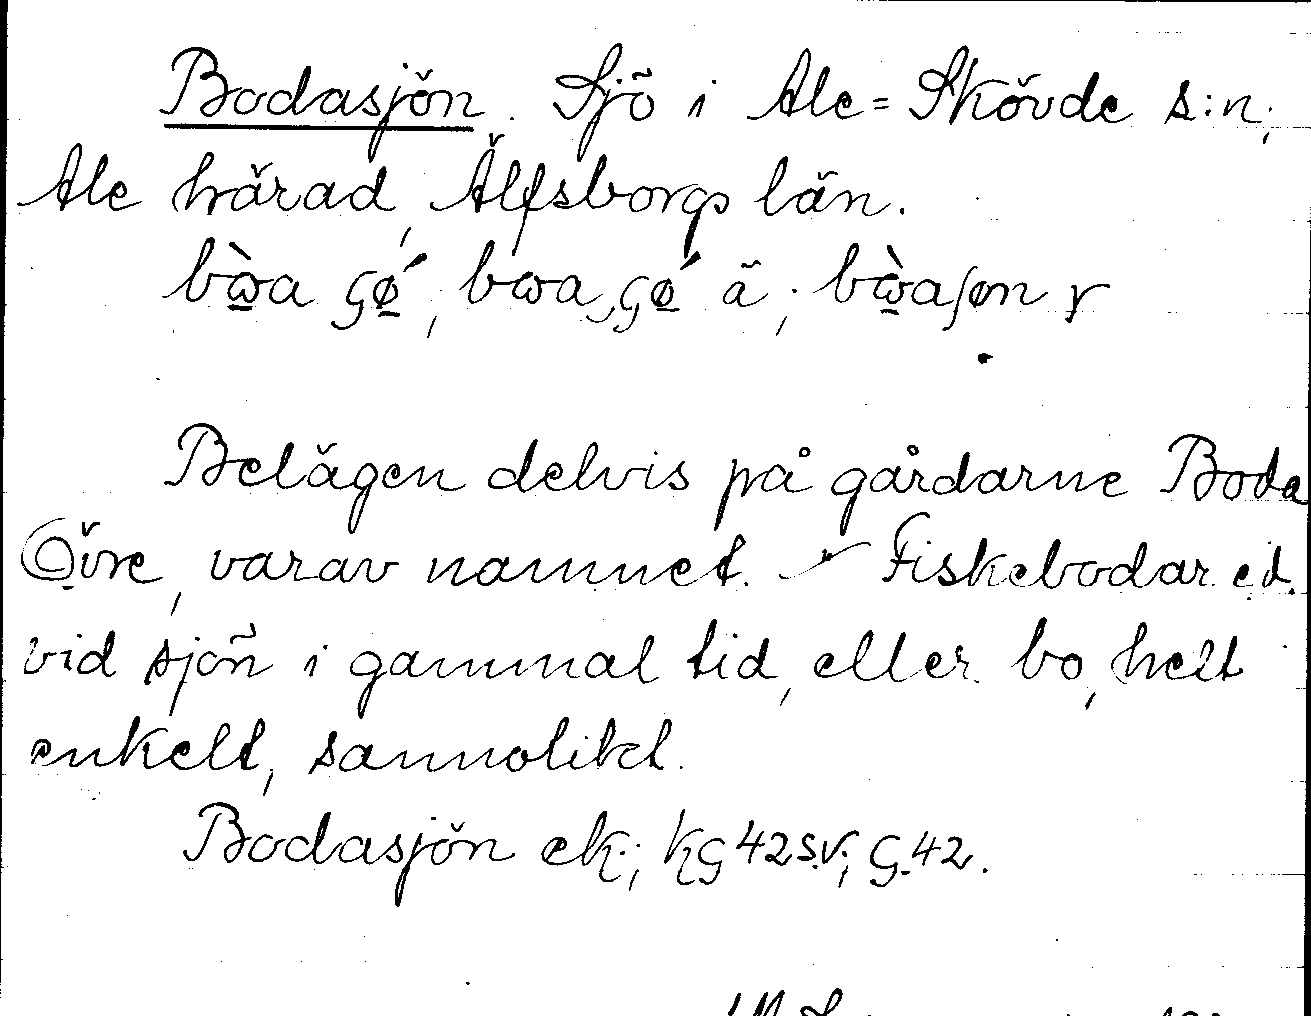 Bodasjön. Sjö i Ale=Skövde s:n,
Ale härad, Älfsborgs län.
bɷ̀a ʂǿ, bɷa ʂǿ ä; bɷ̀aʃøn y
Belägen delvis på gårdarne Boda
Övre, varav namnet. Fiskebodar ed.
vid sjön i gammal tid, eller bo, helt
enkelt, sannolikt.
Bodasjön ek; kG42sv; G.42.